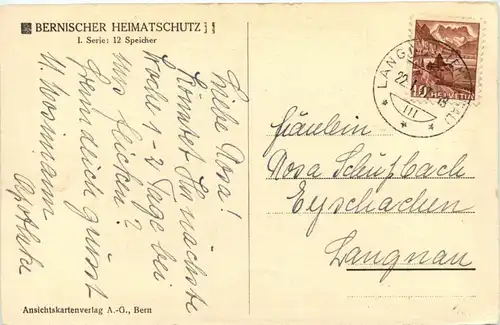 BERNISCHER HEIMATSCHUTZ
I. Serie: 12 Speicher
Liebe Rosa!
Könntest Du nächste
Woche 1-2 Tage bei
uns flicken?
Freundlich grüsst
M. Mosimann
Apotheke
Ansichtskartenverlag A.-G., Bern
LANGNAU
22.
III
10 HELVETIA
Fräulein
Rosa Schüpbach
Eyschachen
Langnau